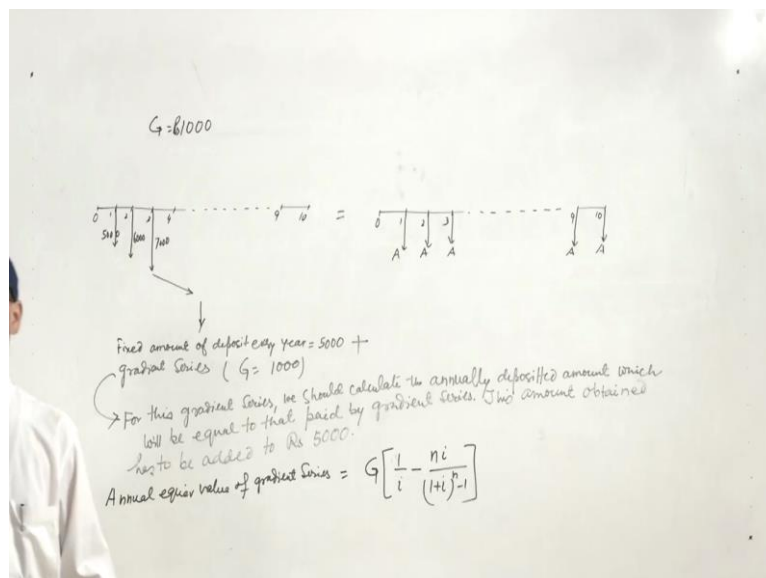 G = ₹1000
0 1 2 3 4 9 10 = 0 1 2 3 9 10
5000 6000 7000 A A A A A
Fixed amount of deposit every year = 5000 +
gradient Series ( G = 1000)
For this gradient Series, we should calculate the annually depositted amount which
will be equal to that paid by gradient series. This amount obtained
has to be added to Rs 5000.
Annual equiv value of gradient Series = G[1/i - ni/((1+i)^n-1)]